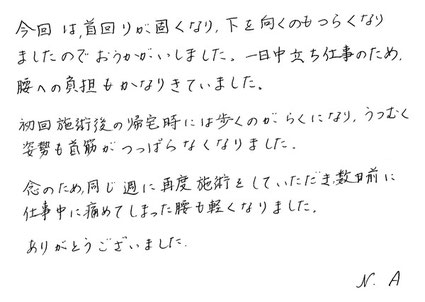 今回は,首回りが固くなり,下を向くのもつらくなり
ましたのでおうかがいしました。一日中立ち仕事のため,
腰への負担もかなりきていました。
初回施術後の帰宅時には歩くのがらくになり,うつむく
姿勢も首筋がつっぱらなくなりました。
念のため,同じ週に再度施術をしていただき,数日前に
仕事中に痛めてしまった腰も軽くなりました。
ありがとうございました.
N. A